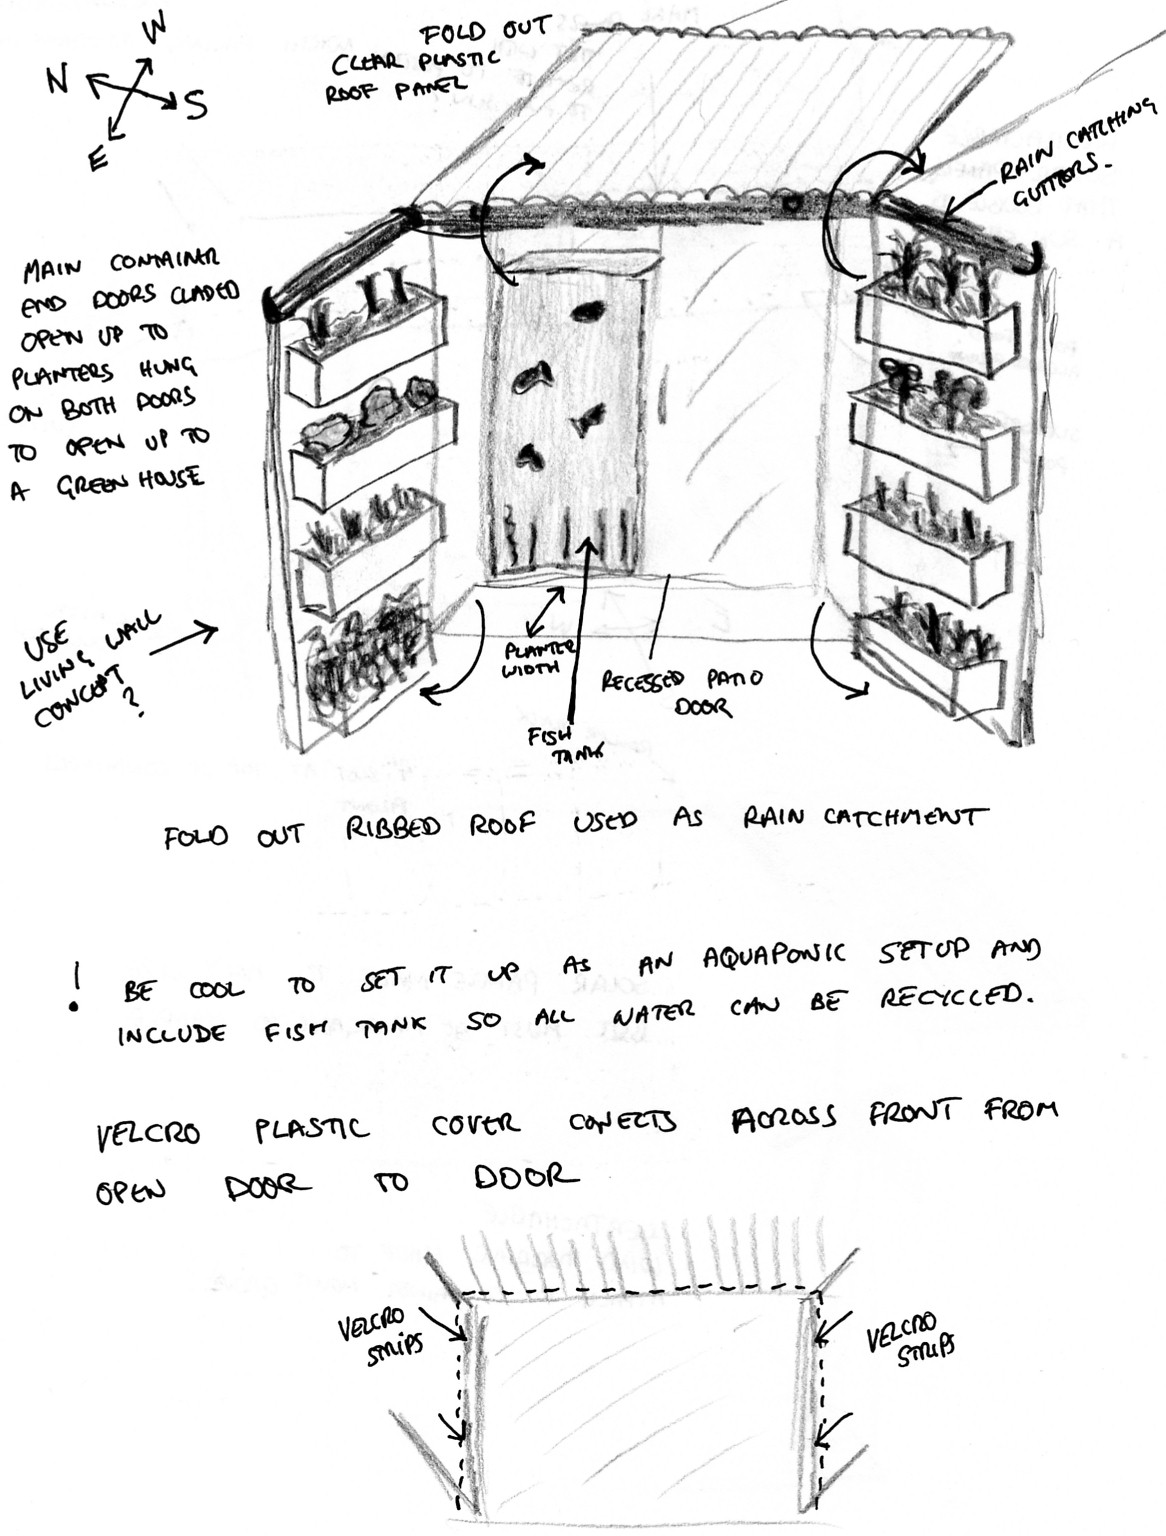 W
N
S
E
FOLD OUT
CLEAR PLASTIC
ROOF PANEL
RAIN CATCHING
GUTTORS.
MAIN CONTAINR
END DOORS CLADED
OPEN UP TO
PLANTERS HUNG
ON BOTH DOORS
TO OPEN UP TO
A GREEN HOUSE
USE
LIVING WALL
CONCEPT
?
PLANTER
WIDTH
RECESSED PATIO
DOOR
FISH
TANK
FOLD OUT RIBBED ROOF USED AS RAIN CATCHMENT
! BE COOL TO SET IT UP AS AN AQUAPONIC SETUP AND
INCLUDE FISH TANK SO ALL WATER CAN BE RECYCLED.
VELCRO PLASTIC COVER CONECTS ACROSS FRONT FROM
OPEN DOOR TO DOOR
VELCRO
STRIPS
VELCRO
STRIPS